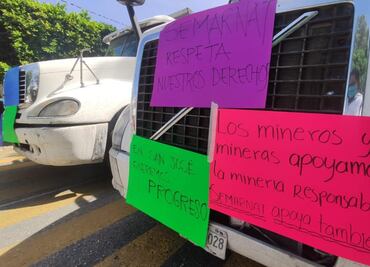 SEMARNAT
RESPETA
NUESTROS DERECHO
Los mineros y
mineras apoyamo
la minería responsab
SEMARNAT apoya tambie
EN SAN JOSÉ
QUEREMOS
PROGRESO
028